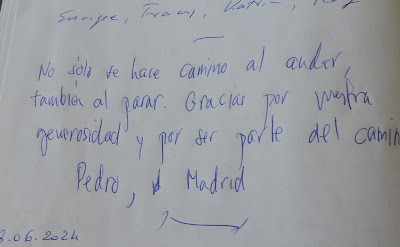 Enrique, Tracy, Katrin,
No sólo se hace camino al andar,
también al parar. Gracias por vuestra
generosidad y por ser parte del camin
Pedro, Madrid
8.06.2024